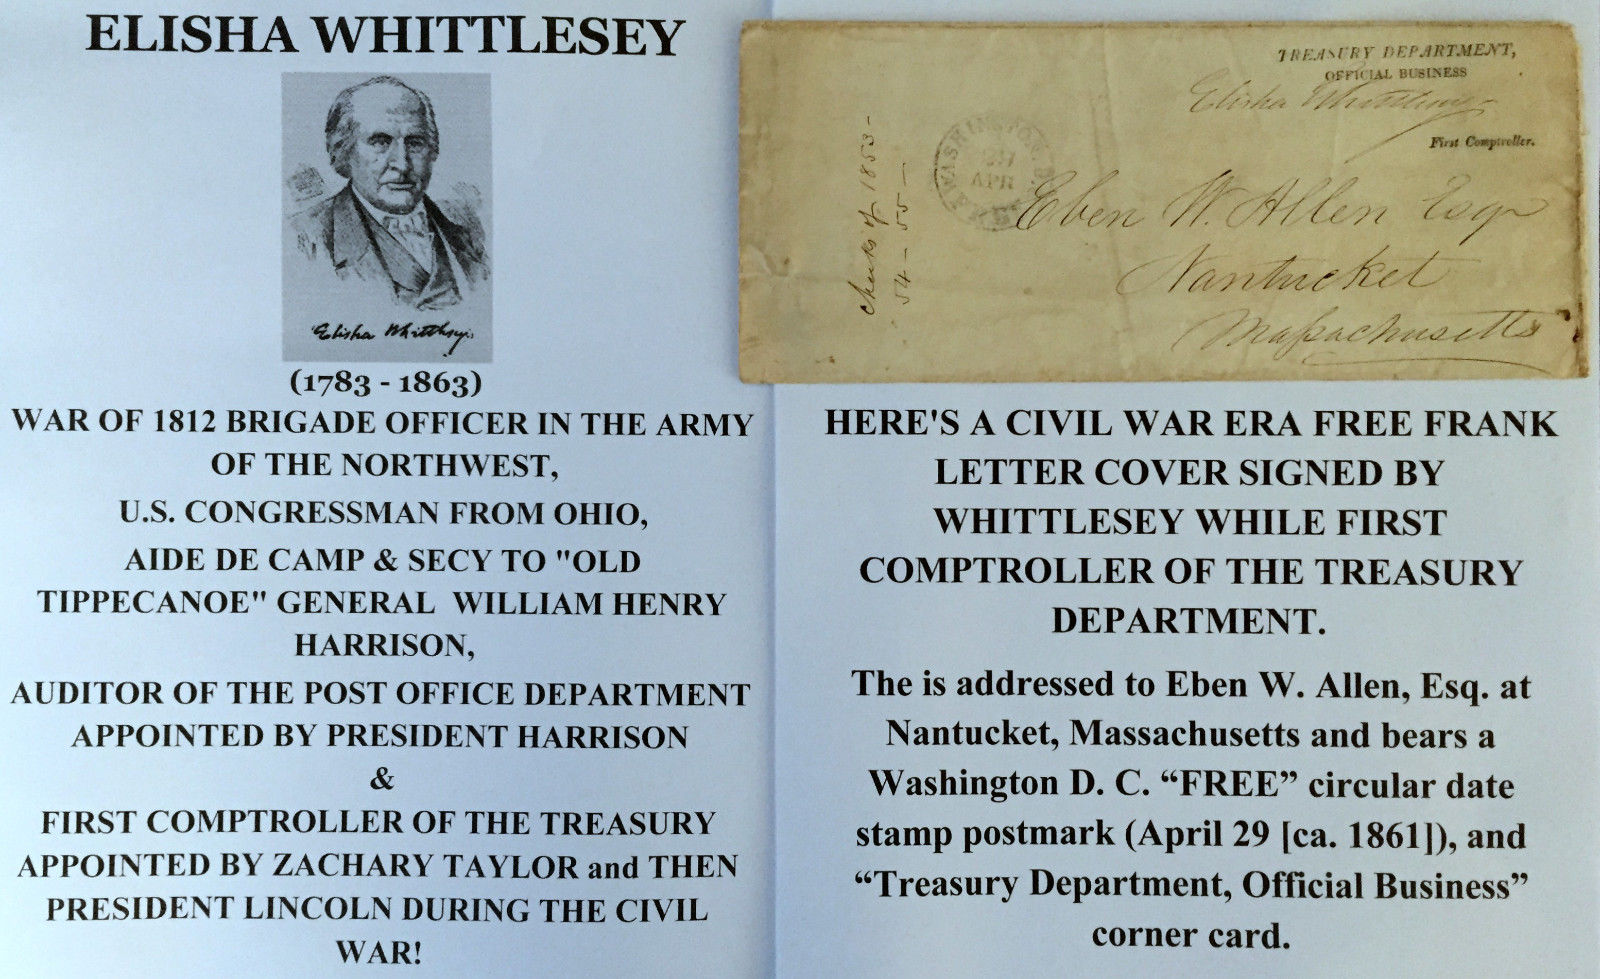 ELISHA WHITTLESEY
Elisha Whittlesey
(1783 - 1863)
WAR OF 1812 BRIGADE OFFICER IN THE ARMY
OF THE NORTHWEST,
U.S. CONGRESSMAN FROM OHIO,
AIDE DE CAMP & SECY TO "OLD
TIPPECANOE" GENERAL WILLIAM HENRY
HARRISON,
AUDITOR OF THE POST OFFICE DEPARTMENT
APPOINTED BY PRESIDENT HARRISON
&
FIRST COMPTROLLER OF THE TREASURY
APPOINTED BY ZACHARY TAYLOR and THEN
PRESIDENT LINCOLN DURING THE CIVIL
WAR!
TREASURY DEPARTMENT,
OFFICIAL BUSINESS
Elisha Whittlesey
First Comptroller.
WASHINGTON D.
APR
FREE
Checks of 1853-
54 - 55 -
Eben W. Allen Esqr
Nantucket
Massachusetts
HERE'S A CIVIL WAR ERA FREE FRANK
LETTER COVER SIGNED BY
WHITTLESEY WHILE FIRST
COMPTROLLER OF THE TREASURY
DEPARTMENT.
The is addressed to Eben W. Allen, Esq. at
Nantucket, Massachusetts and bears a
Washington D. C. “FREE” circular date
stamp postmark (April 29 [ca. 1861]), and
“Treasury Department, Official Business”
corner card.